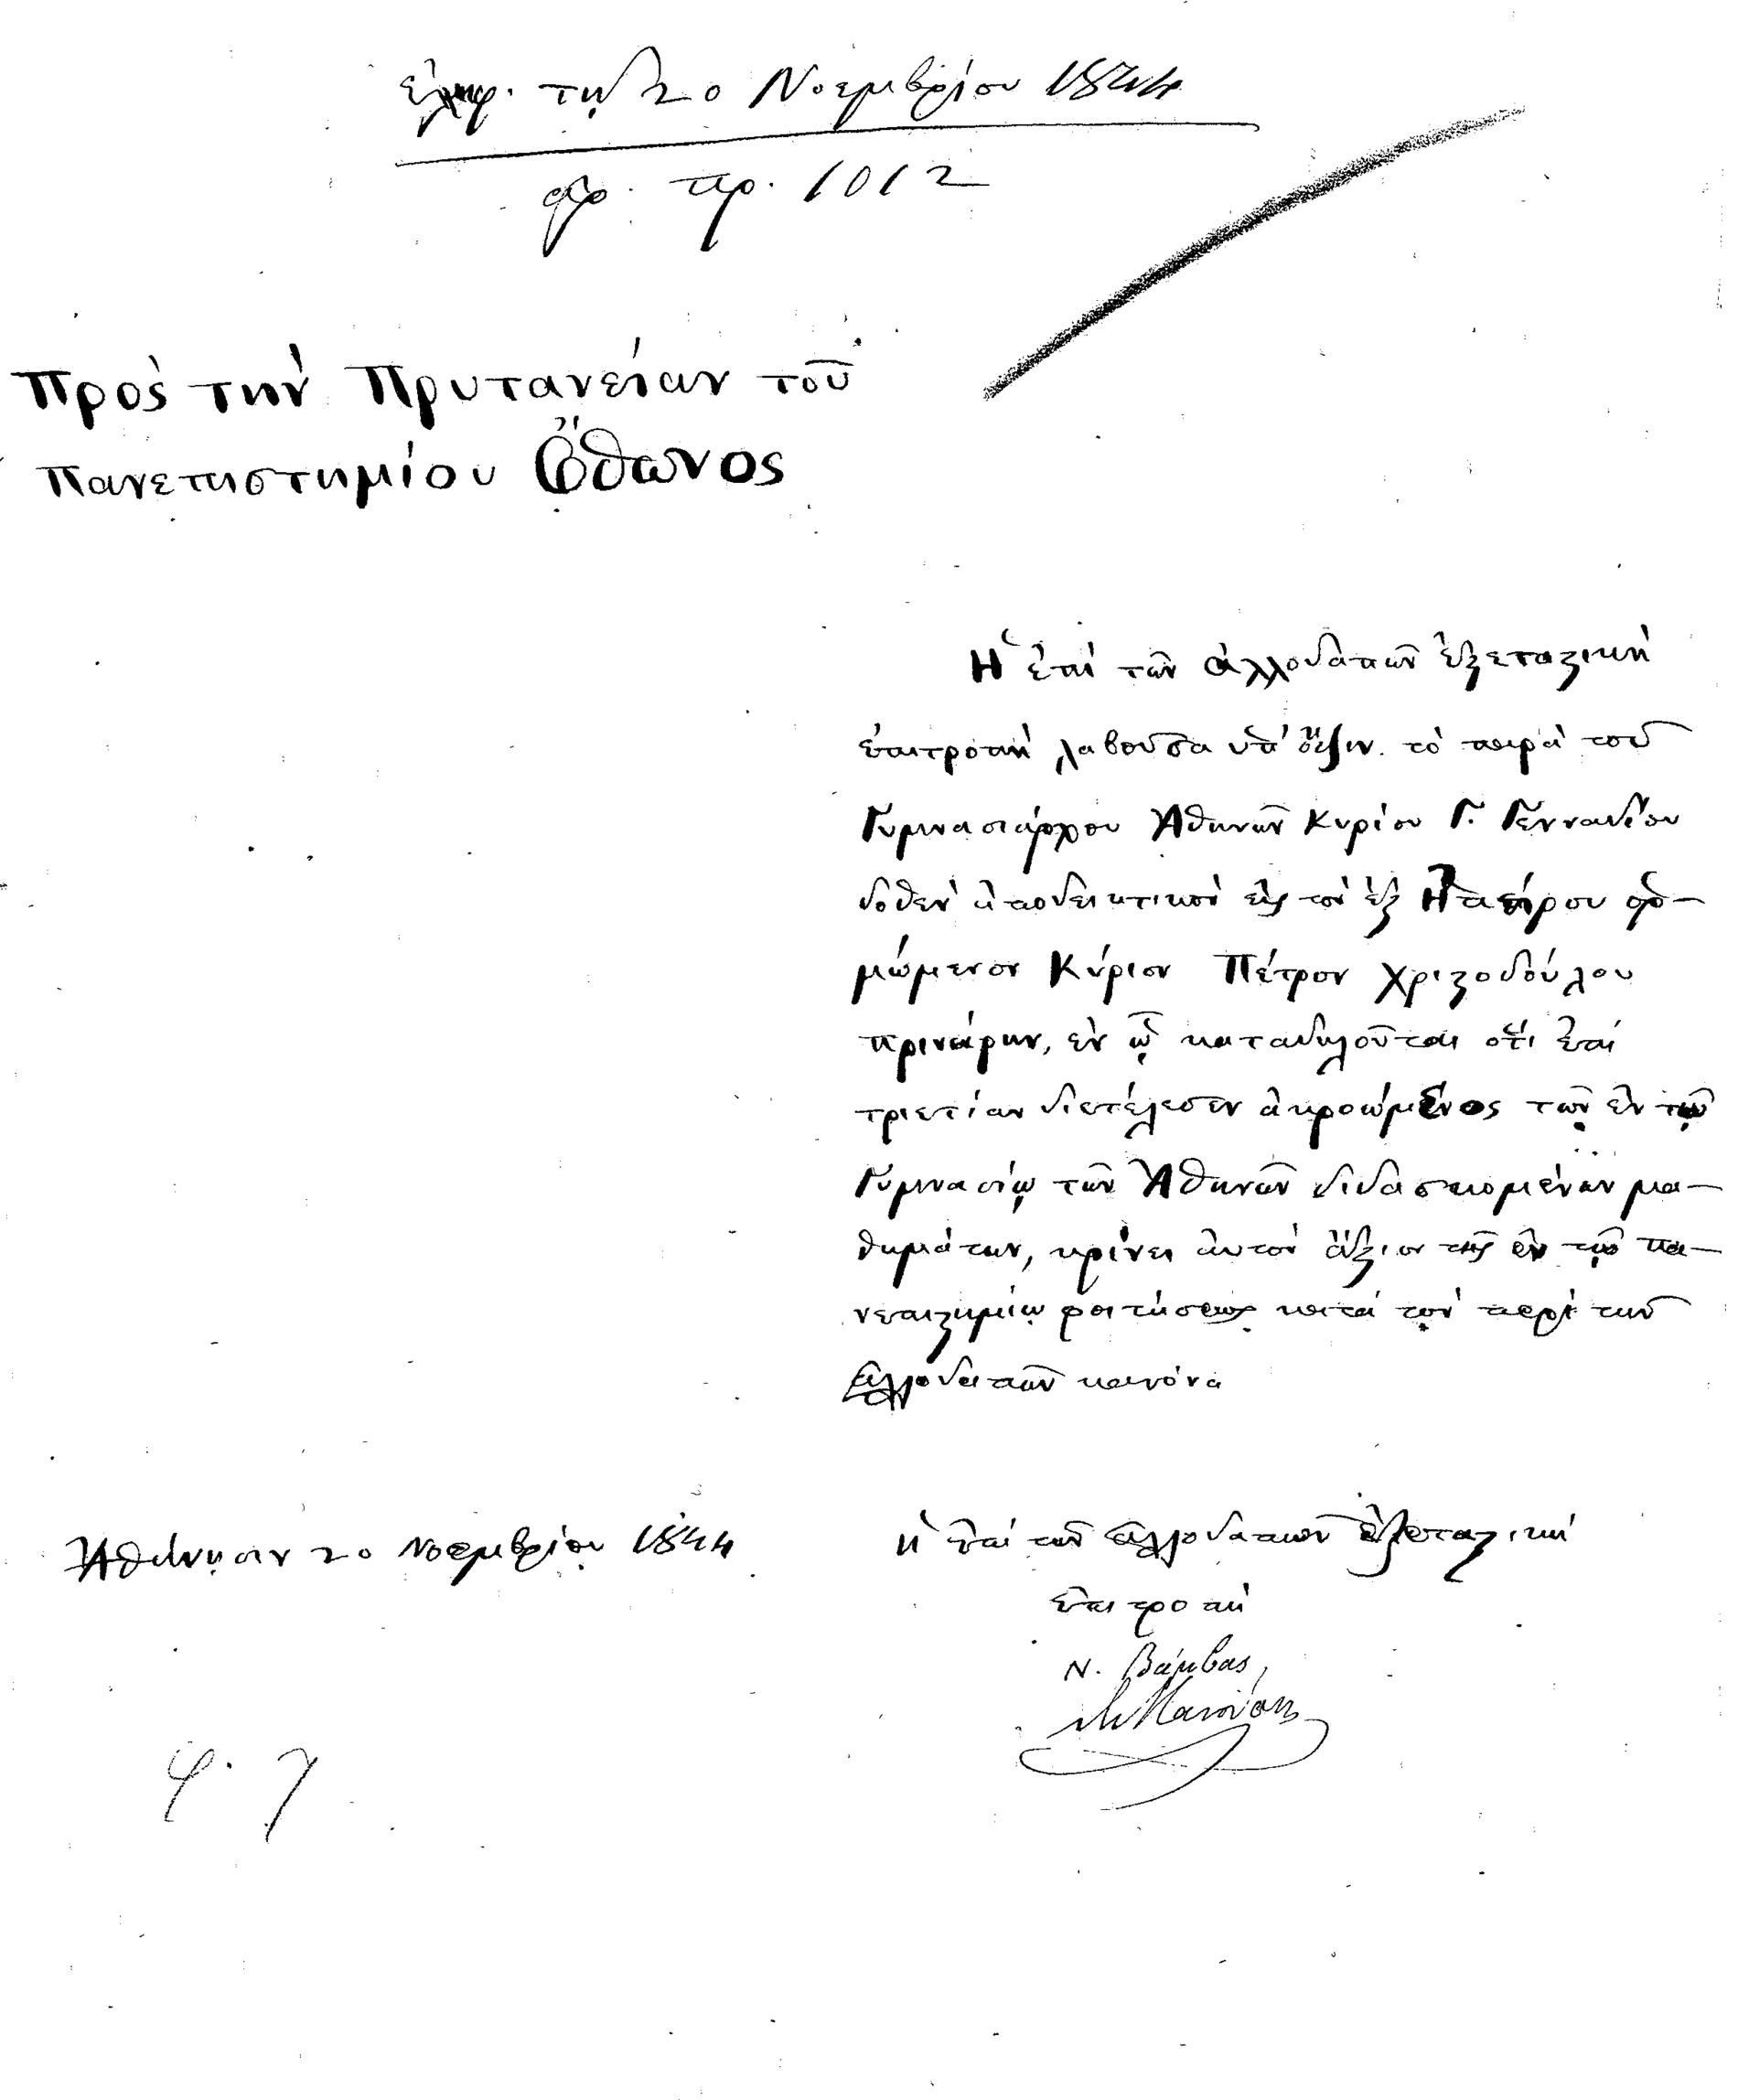 ἐλήφ. τῇ 20 Νοεμβρίου 1844
ἀρ. πρ. 1012
Πρὸς τὴν Πρυτανείαν τοῦ
Πανεπιστημίου Ὄθωνος
Ἡ ἐπὶ τῶν ἀλλοδαπῶν ἐξεταστικὴ
ἐπιτροπὴ λαβοῦσα ὑπ' ὄψιν τὸ παρὰ τοῦ
Γυμνασιάρχου Ἀθηνῶν Κυρίου Γ. Γενναδίου
δοθὲν ἀποδεικτικὸν εἰς τὸν ἐξ Ἠπείρου ὁρ-
μώμενον Κύριον Πέτρον Χριστοδούλου
πρινάρην, ἐν ᾧ καταδηλοῦται ὅτι ἐπὶ
τριετίαν διετέλεσεν ἀκροώμενος τῶν ἐν τῷ
Γυμνασίῳ τῶν Ἀθηνῶν διδασκομένων μα-
θημάτων, κρίνει αὐτὸν ἄξιον τῆς ἐν τῷ πα-
νεπιστημίῳ φοιτήσεως κατὰ τὸν περὶ τῶν
ἀλλοδαπῶν κανόνα
Ἀθήνησιν 20 Νοεμβρίου 1844
ἡ ἐπὶ τῶν ἀλλοδαπῶν ἐξεταστικὴ
ἐπιτροπὴ
Ν. Βάμβας
φ. 7